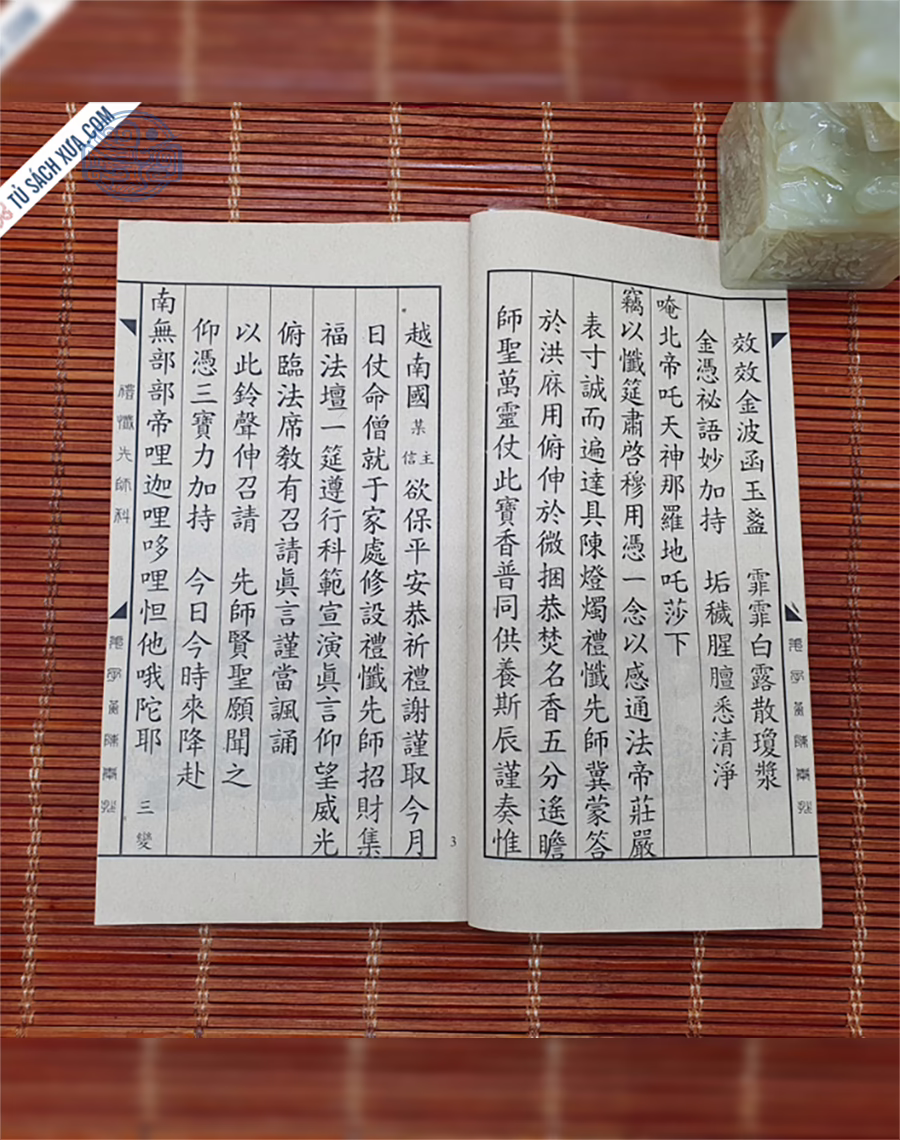 TỦ SÁCH XƯA.COM
效效金波函玉盞 霏霏白露散瓊漿
金憑祕語妙加持 垢穢腥膻悉清淨
唵北帝吒天神那羅地吒莎下
竊以懺筵肅啓穆用憑一念以感通法帝莊嚴
表寸誠而遍達具陳燈燭禮懺先師冀蒙答
於洪庥用俯伸於微捆恭焚名香五分遙瞻
師聖萬靈仗此寶香普同供養斯辰謹奏惟
越南國某信主欲保平安恭祈禮謝謹取今月
日仗命僧就于家處修設禮懺先師招財集
福法壇一筵遵行科範宣演眞言仰望威光
俯臨法席教有召請眞言謹當諷誦
以此鈴聲伸召請 先師賢聖願聞之
仰憑三寶力加持 今日今時來降赴
南無部部帝哩迦哩哆哩怛他哦陀耶 三變
禮懺先師科
3